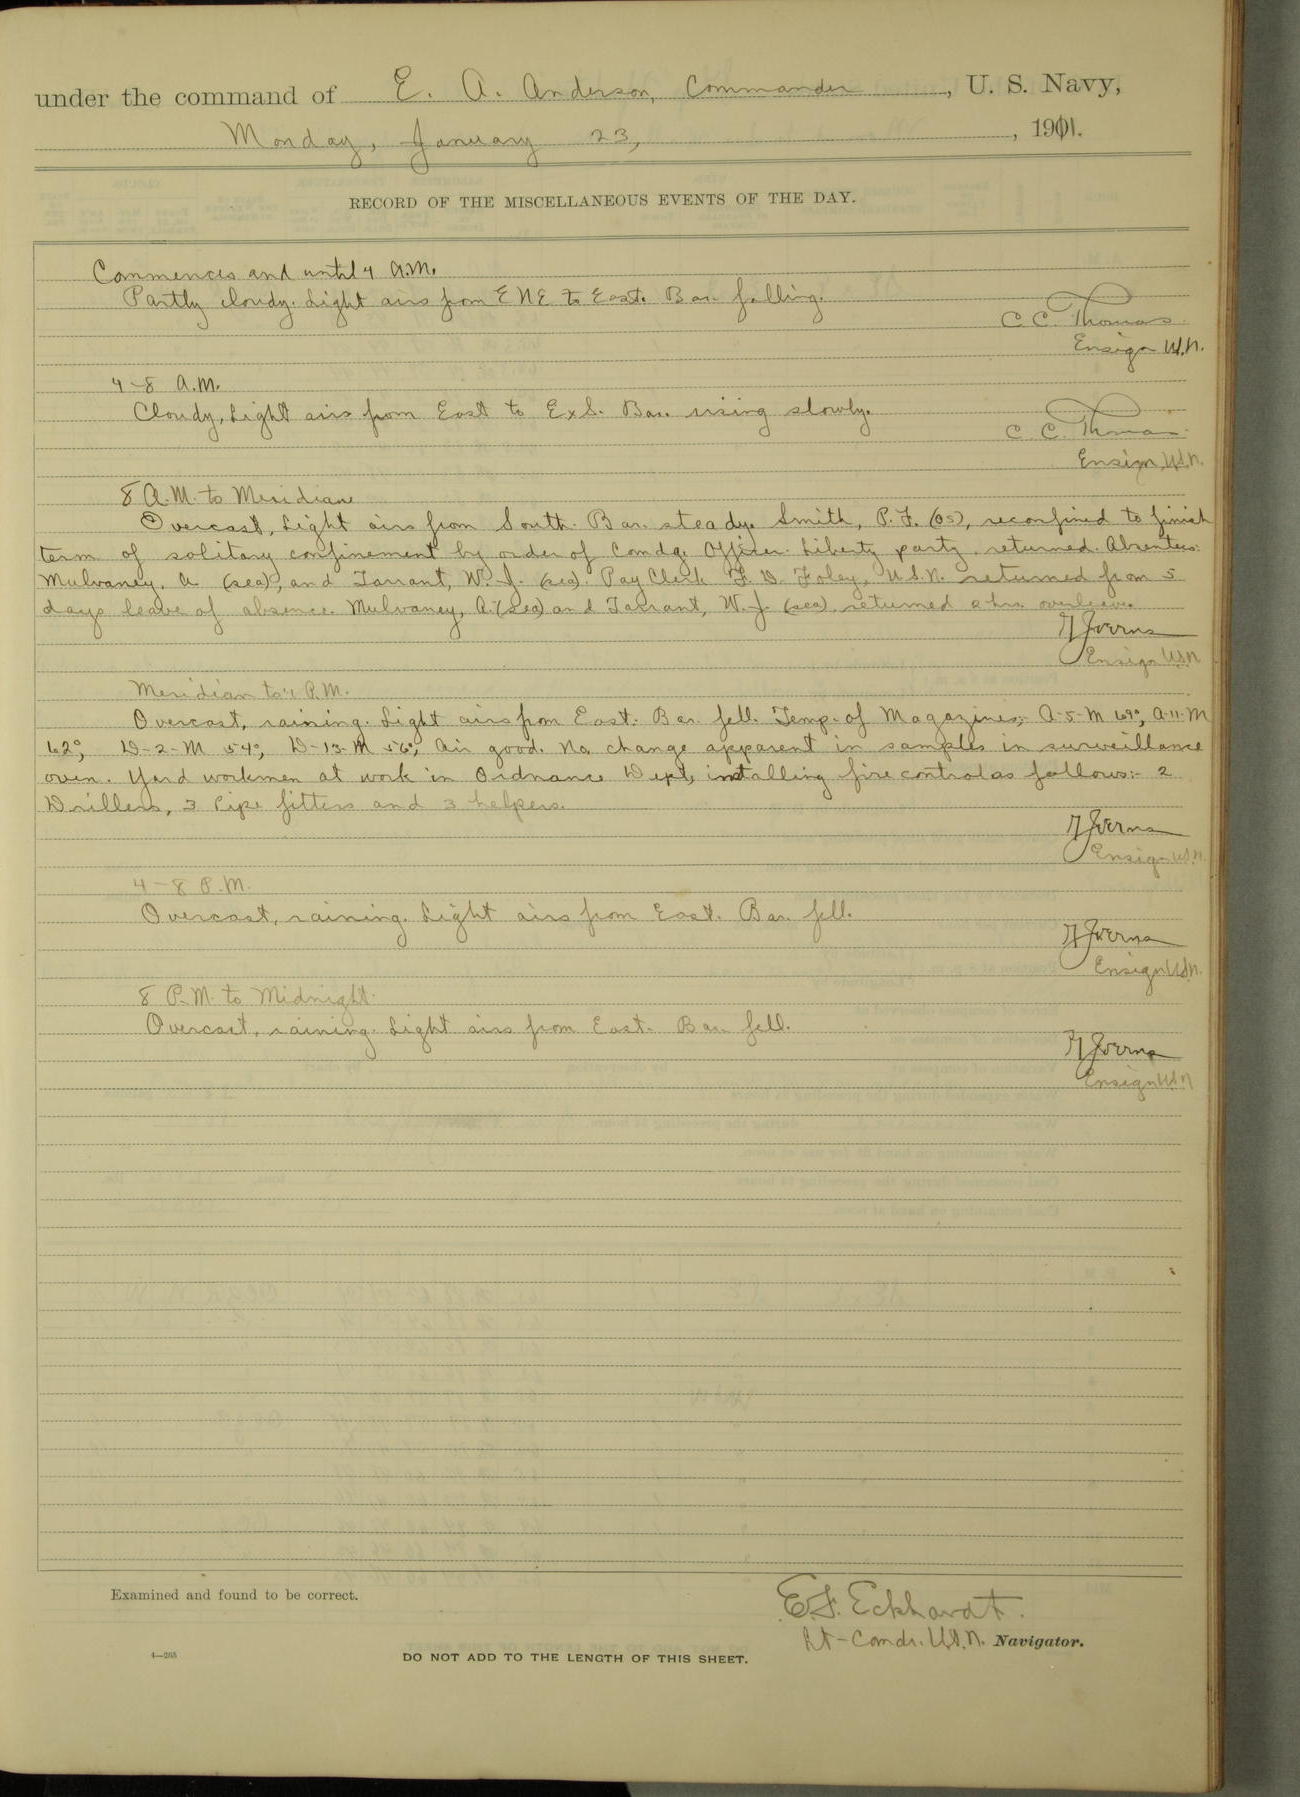 under the command of E. A. Anderson, Commander, U. S. Navy,
Monday, January 23, 1911.
RECORD OF THE MISCELLANEOUS EVENTS OF THE DAY.
Commences and until 4 A.M.
Partly cloudy. Light airs from ENE to East. Bar. falling.
C. C. Thomas
Ensign U.S.N.
4-8 A.M.
Cloudy, Light airs from East to ExS. Bar. rising slowly.
C. C. Thomas
Ensign, U.S.N.
8 A.M. to Meridian
Overcast, Light airs from South. Bar. steady. Smith, P.F. (OS), reconfined to finish
term of solitary confinement by order of Comdg. Officer. Liberty party returned. Absentees:
Mulvaney, A. (sea), and Tarrant, W. J. (sea). Pay Clerk F. D. Foley, U.S.N. returned from 5
days leave of absence. Mulvaney, A. (sea) and Tarrant, W. J. (sea) returned 2 hrs. overleave.
Ensign U.S.N
Meridian to 4 P.M.
Overcast, raining. Light airs from East. Bar. fell. Temp. of Magazines;- A-5-M 69°, A-11-M
62°, D-2-M 54°, D-13-M 56°, Air good. No change apparent in samples in surveillance
oven. Yard workmen at work in Ordnance Dept, installing fire control as follows:- 2
Drillers, 3 Pipe fitters and 3 helpers.
Ensign U.S.N.
4-8 P.M.
Overcast, raining. Light airs from East. Bar. fell.
Ensign U.S.N.
8 P.M. to Midnight.
Overcast, raining. Light airs from East. Bar. fell.
Ensign U.S.N
Examined and found to be correct.
E.F. Eckhardt.
Lt-Comdr. U.S.N. Navigator.
4—265
DO NOT ADD TO THE LENGTH OF THIS SHEET.